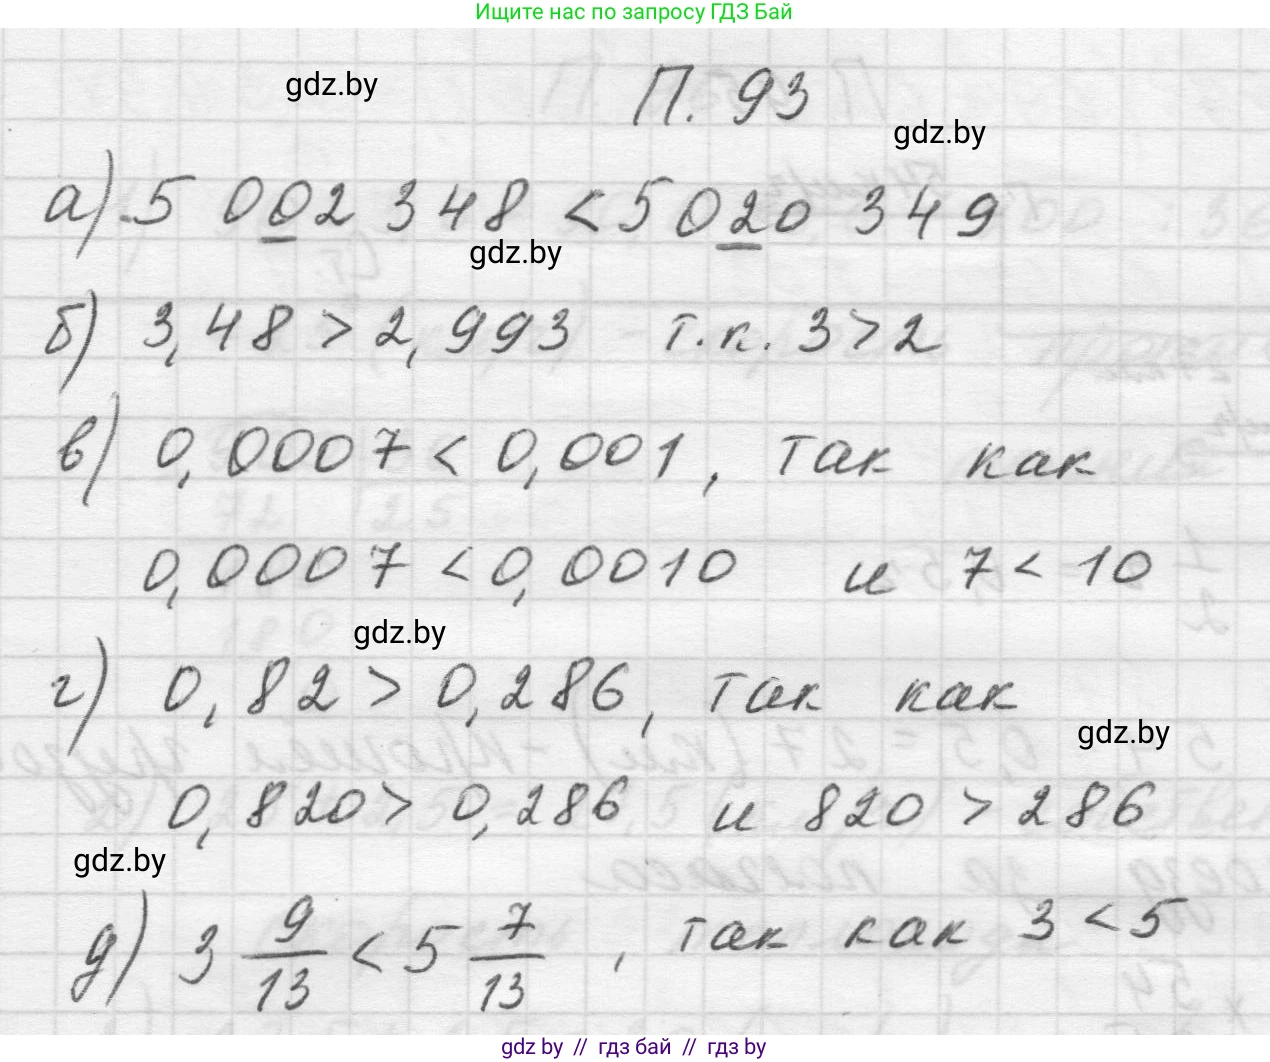 Ищите нас по запросу ГДЗ Бай
gdz.by
П. 93
gdz.by
а) 5 002 348 < 5 020 349
gdz.by
б) 3,48 > 2,993 т.к. 3 > 2
в) 0,0007 < 0,001, так как
0,0007 < 0,0010 и 7 < 10
gdz.by
г) 0,82 > 0,286, так как
gdz.by
0,820 > 0,286 и 820 > 286
gdz.by
д) 3 9/13 < 5 7/13, так как 3 < 5
gdz.by // гдз бай // гдз by